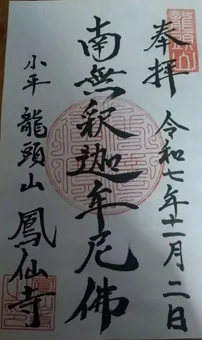 奉拝
龍頭山
令和七年十一月二日
南無釈迦牟尼佛
小平 龍頭山 鳳仙寺